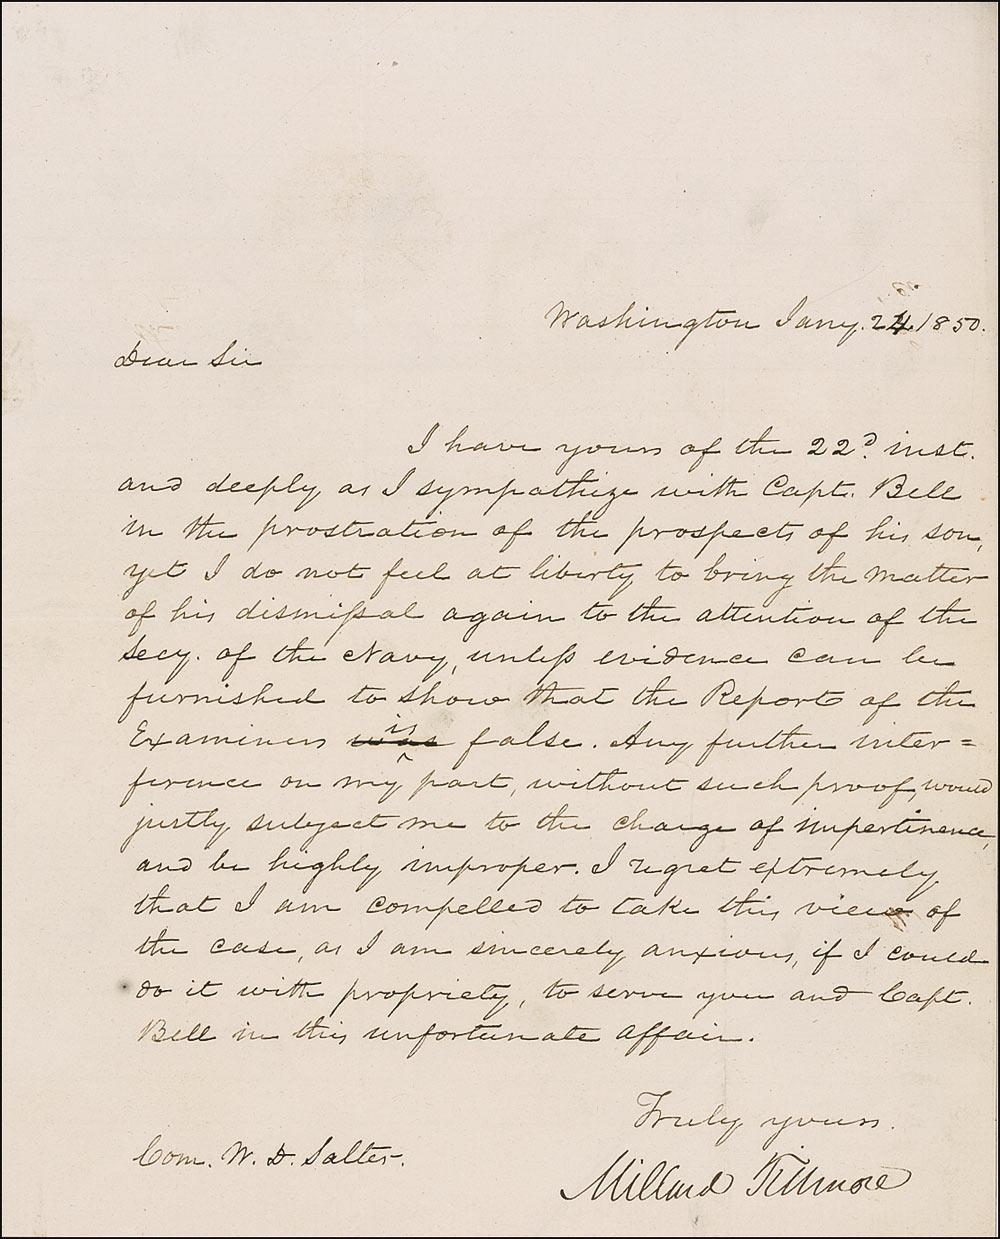 Washington Jany. 24, 1850.
Dear Sir
I have yours of the 22d. inst.
and deeply as I sympathize with Capt. Bell
in the prostration of the prospects of his son,
yet I do not feel at liberty to bring the matter
of his dismissal again to the attention of the
Secy. of the Navy, unless evidence can be
furnished to show that the Report of the
Examiners was is false. Any further inter=
ference on my part, without such proof, would
justly subject me to the charge of impertinence,
and be highly improper. I regret extremely
that I am compelled to take this view of
the case, as I am sincerely anxious, if I could
do it with propriety, to serve you and Capt.
Bell in this unfortunate affair.
Truly yours.
Com. W. D. Salter.
Millard Fillmore